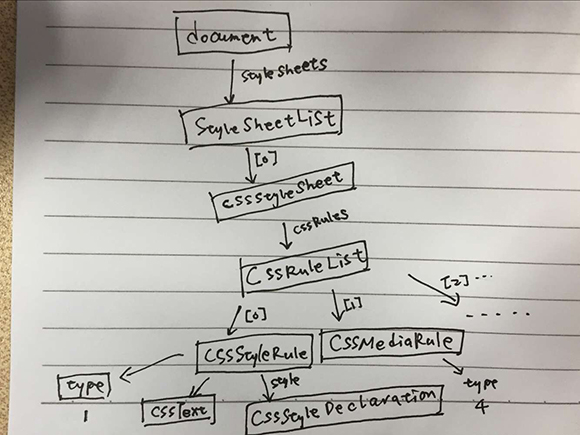 document
styleSheets
StyleSheetList
[0]
cssStyleSheet
cssRules
CssRuleList
[0]
[1]
[2] ...
......
CssStyleRule
CssMediaRule
type
style
type
1
cssText
CssStyleDeclaration
4